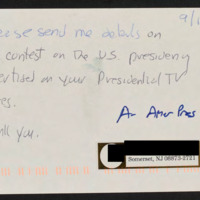 9/1
ease send me details on
contest on the U.S. presidency
ertised on your Presidential TV
es.
ll you.
An Amer
Somerset, NJ 08873-2721